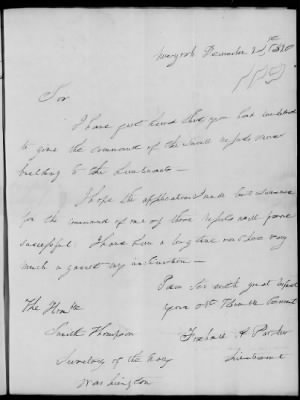 New york December 21st 1820
Sir
I have just heard that you have
to give the command of the small vessels now
building to the Lieutenants —
I hope the application made last summer
for the command of one of those vessels will prove
successful. I have been a long time very
much against my inclination —
I am Sir with great respect
your Ob Humble Servant
Foxhall A Parker
Lieutenant
The Honble
Smith Thompson
Secretary of the Navy
Washington